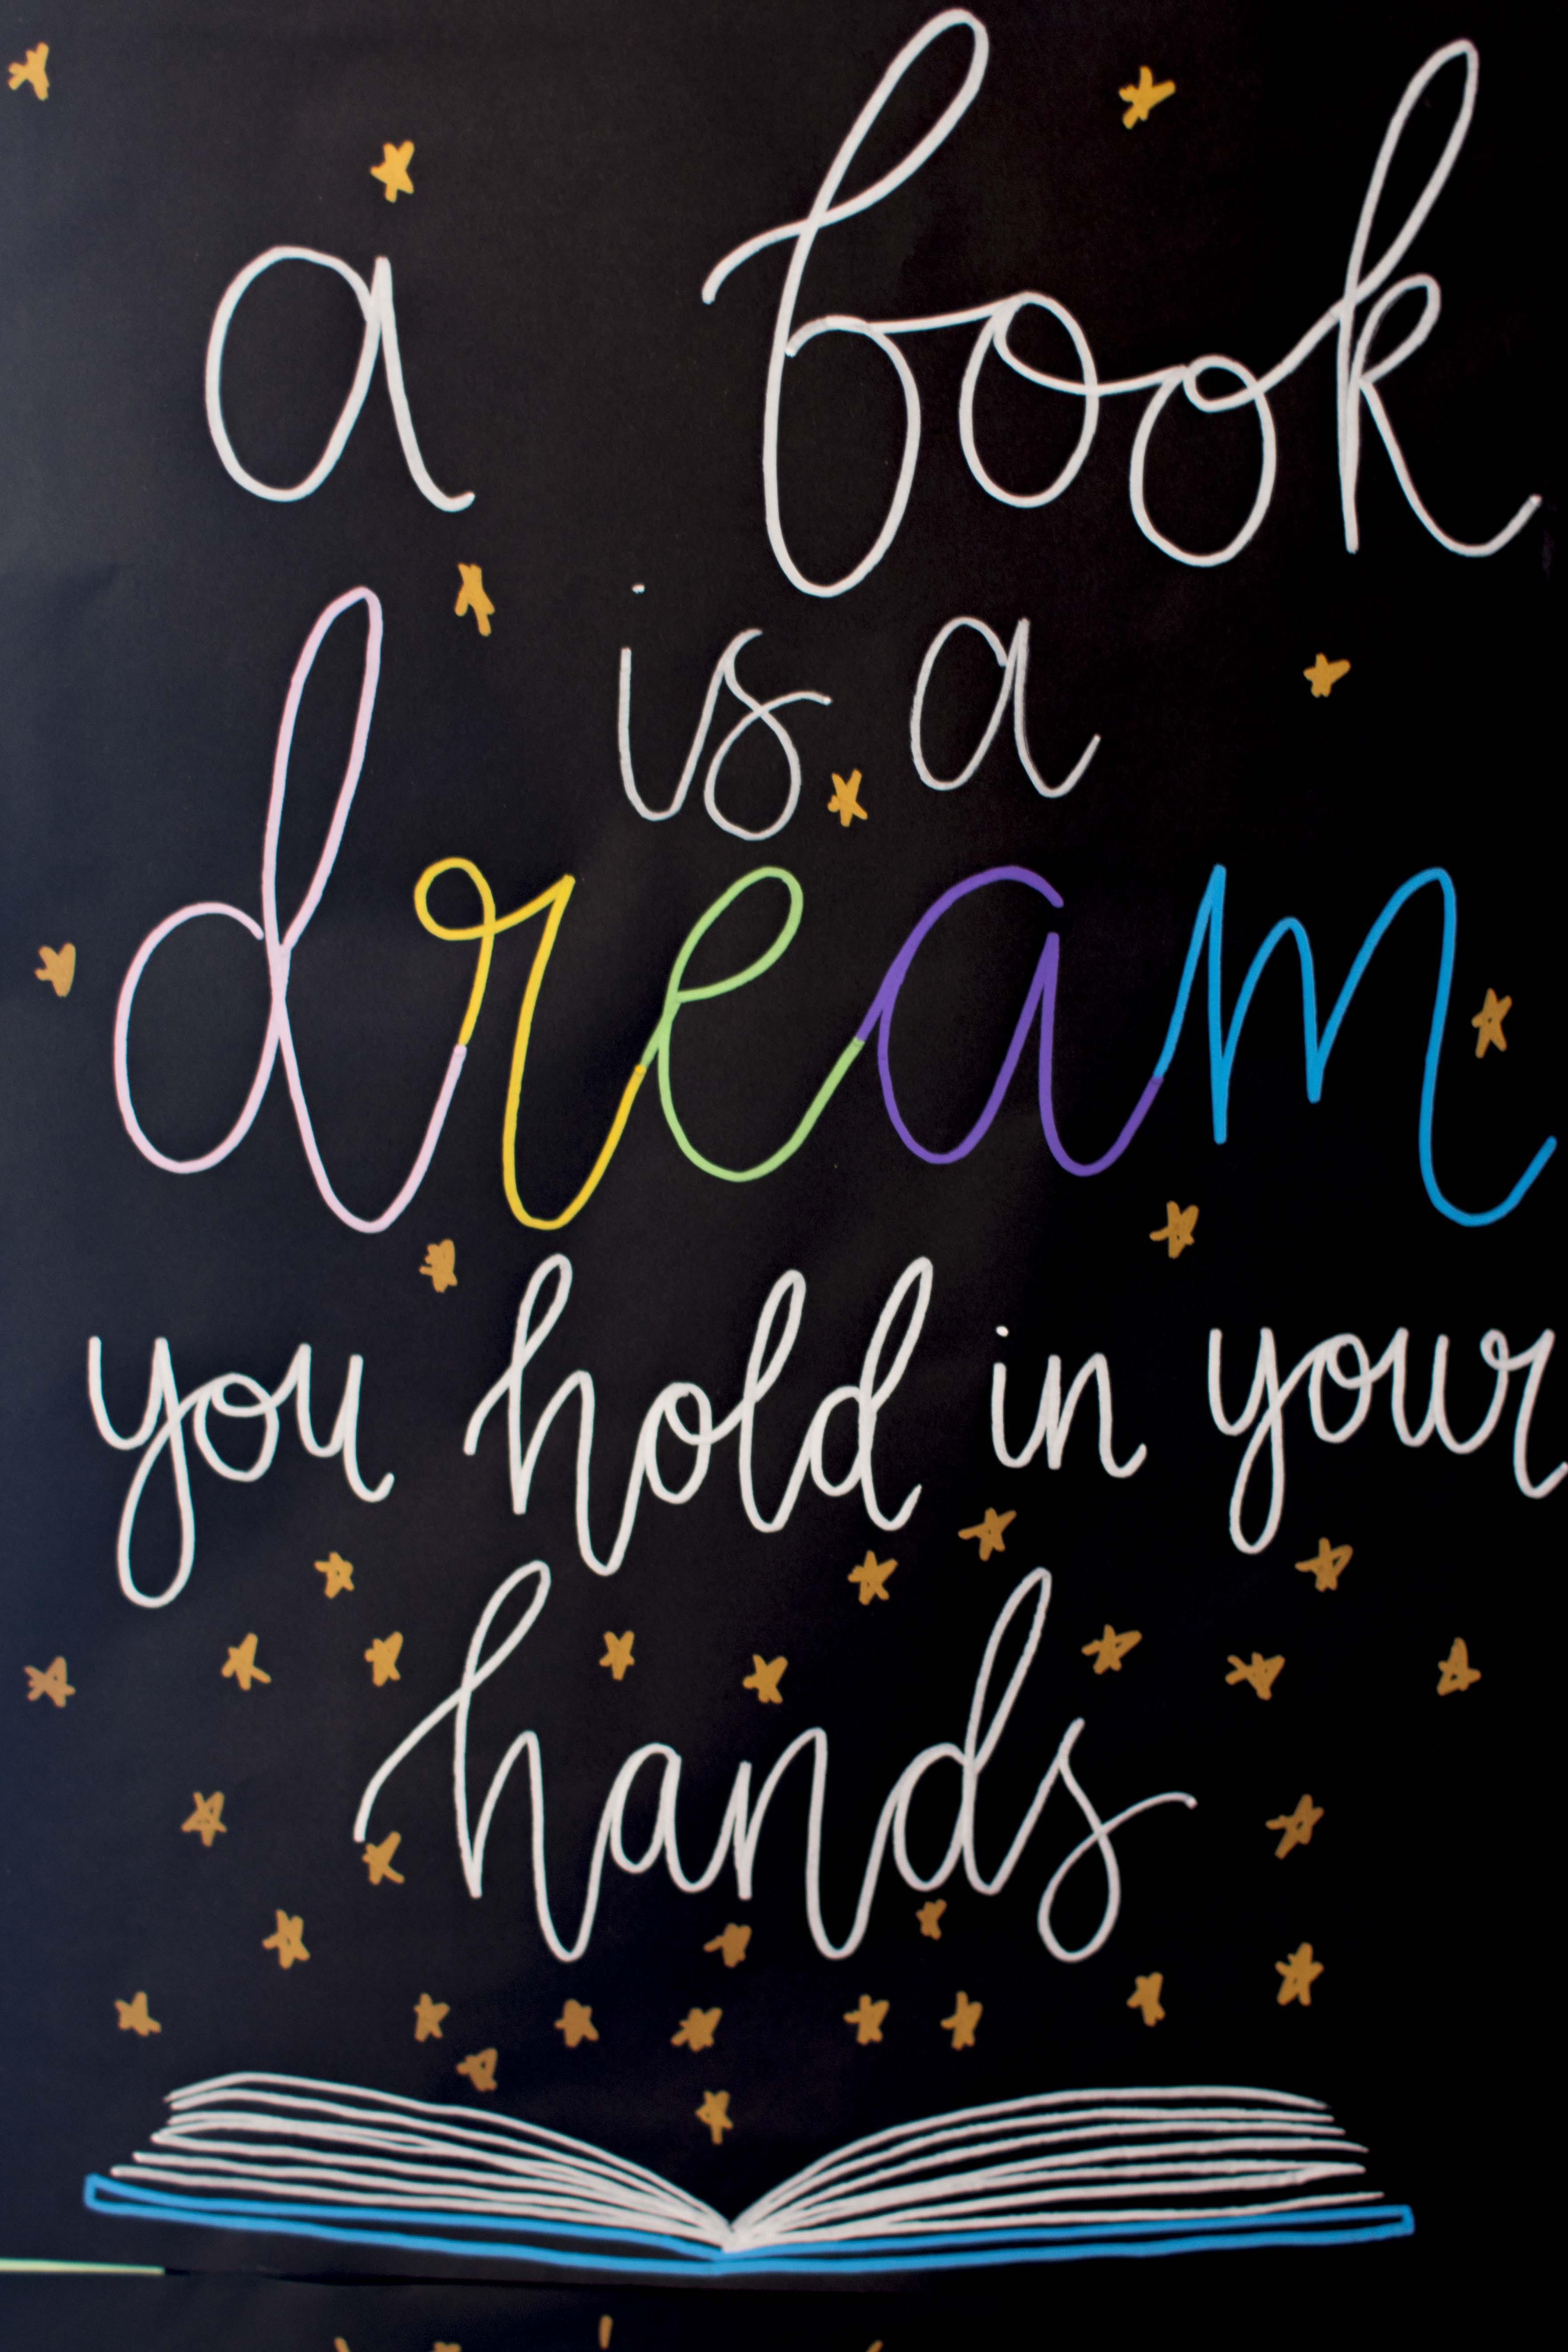 a book
is a
dream
you hold in your
hands